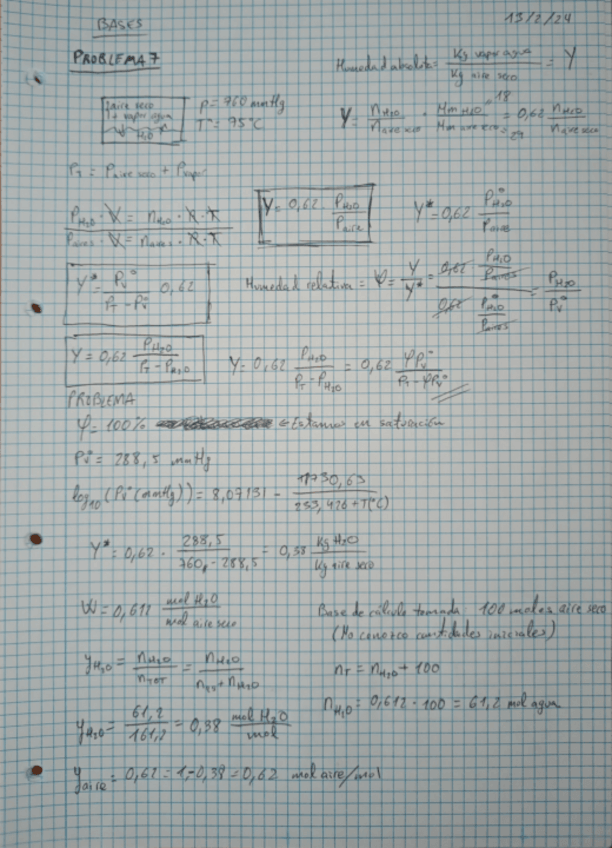 BASES
13/2/24
PROBLEMA 7
Humedad absoluta = Kg vapor agua / Kg aire seco = Y
aire seco + vapor agua
H₂O
p = 760 mmHg
T = 75°C
Y = n H₂O / n aire seco · Mm H₂O / Mm aire seco = 0,62 n H₂O / n aire seco
18
29
P_T = P aire seco + P vapor
P H₂O · V = n H₂O · R · T
P aires · V = n aires · R · T
Y = 0,62 · P H₂O / P aire
Y* = 0,62 P°H₂O / P aire
Y* = Pv° / (P_T - Pv°) 0,62
Humedad relativa = φ = Y / Y* = (0,62 P H₂O / P aires) / (0,62 P°H₂O / P aires) = P H₂O / Pv°
Y = 0,62 P H₂O / (P_T - P H₂O)
Y = 0,62 P H₂O / (P_T - P H₂O) = 0,62 φPv° / (P_T - φPv°)
PROBLEMA
φ = 100% ← Estamos en saturación
Pv° = 288,5 mmHg
log₁₀ (Pv°(mmHg)) = 8,07131 - 1730,63 / (233,426 + T(°C))
Y* = 0,62 · 288,5 / (760 - 288,5) = 0,38 Kg H₂O / Kg aire seco
W = 0,612 mol H₂O / mol aire seco
Base de cálculo tomada: 100 moles aire seco
(No conozco cantidades iniciales)
y H₂O = n H₂O / n TOT = n H₂O / (n as + n H₂O)
n_T = n H₂O + 100
n H₂O = 0,612 · 100 = 61,2 mol agua
y H₂O = 61,2 / 161,2 = 0,38 mol H₂O / mol
y aire = 0,62 = 1 - 0,38 = 0,62 mol aire/mol